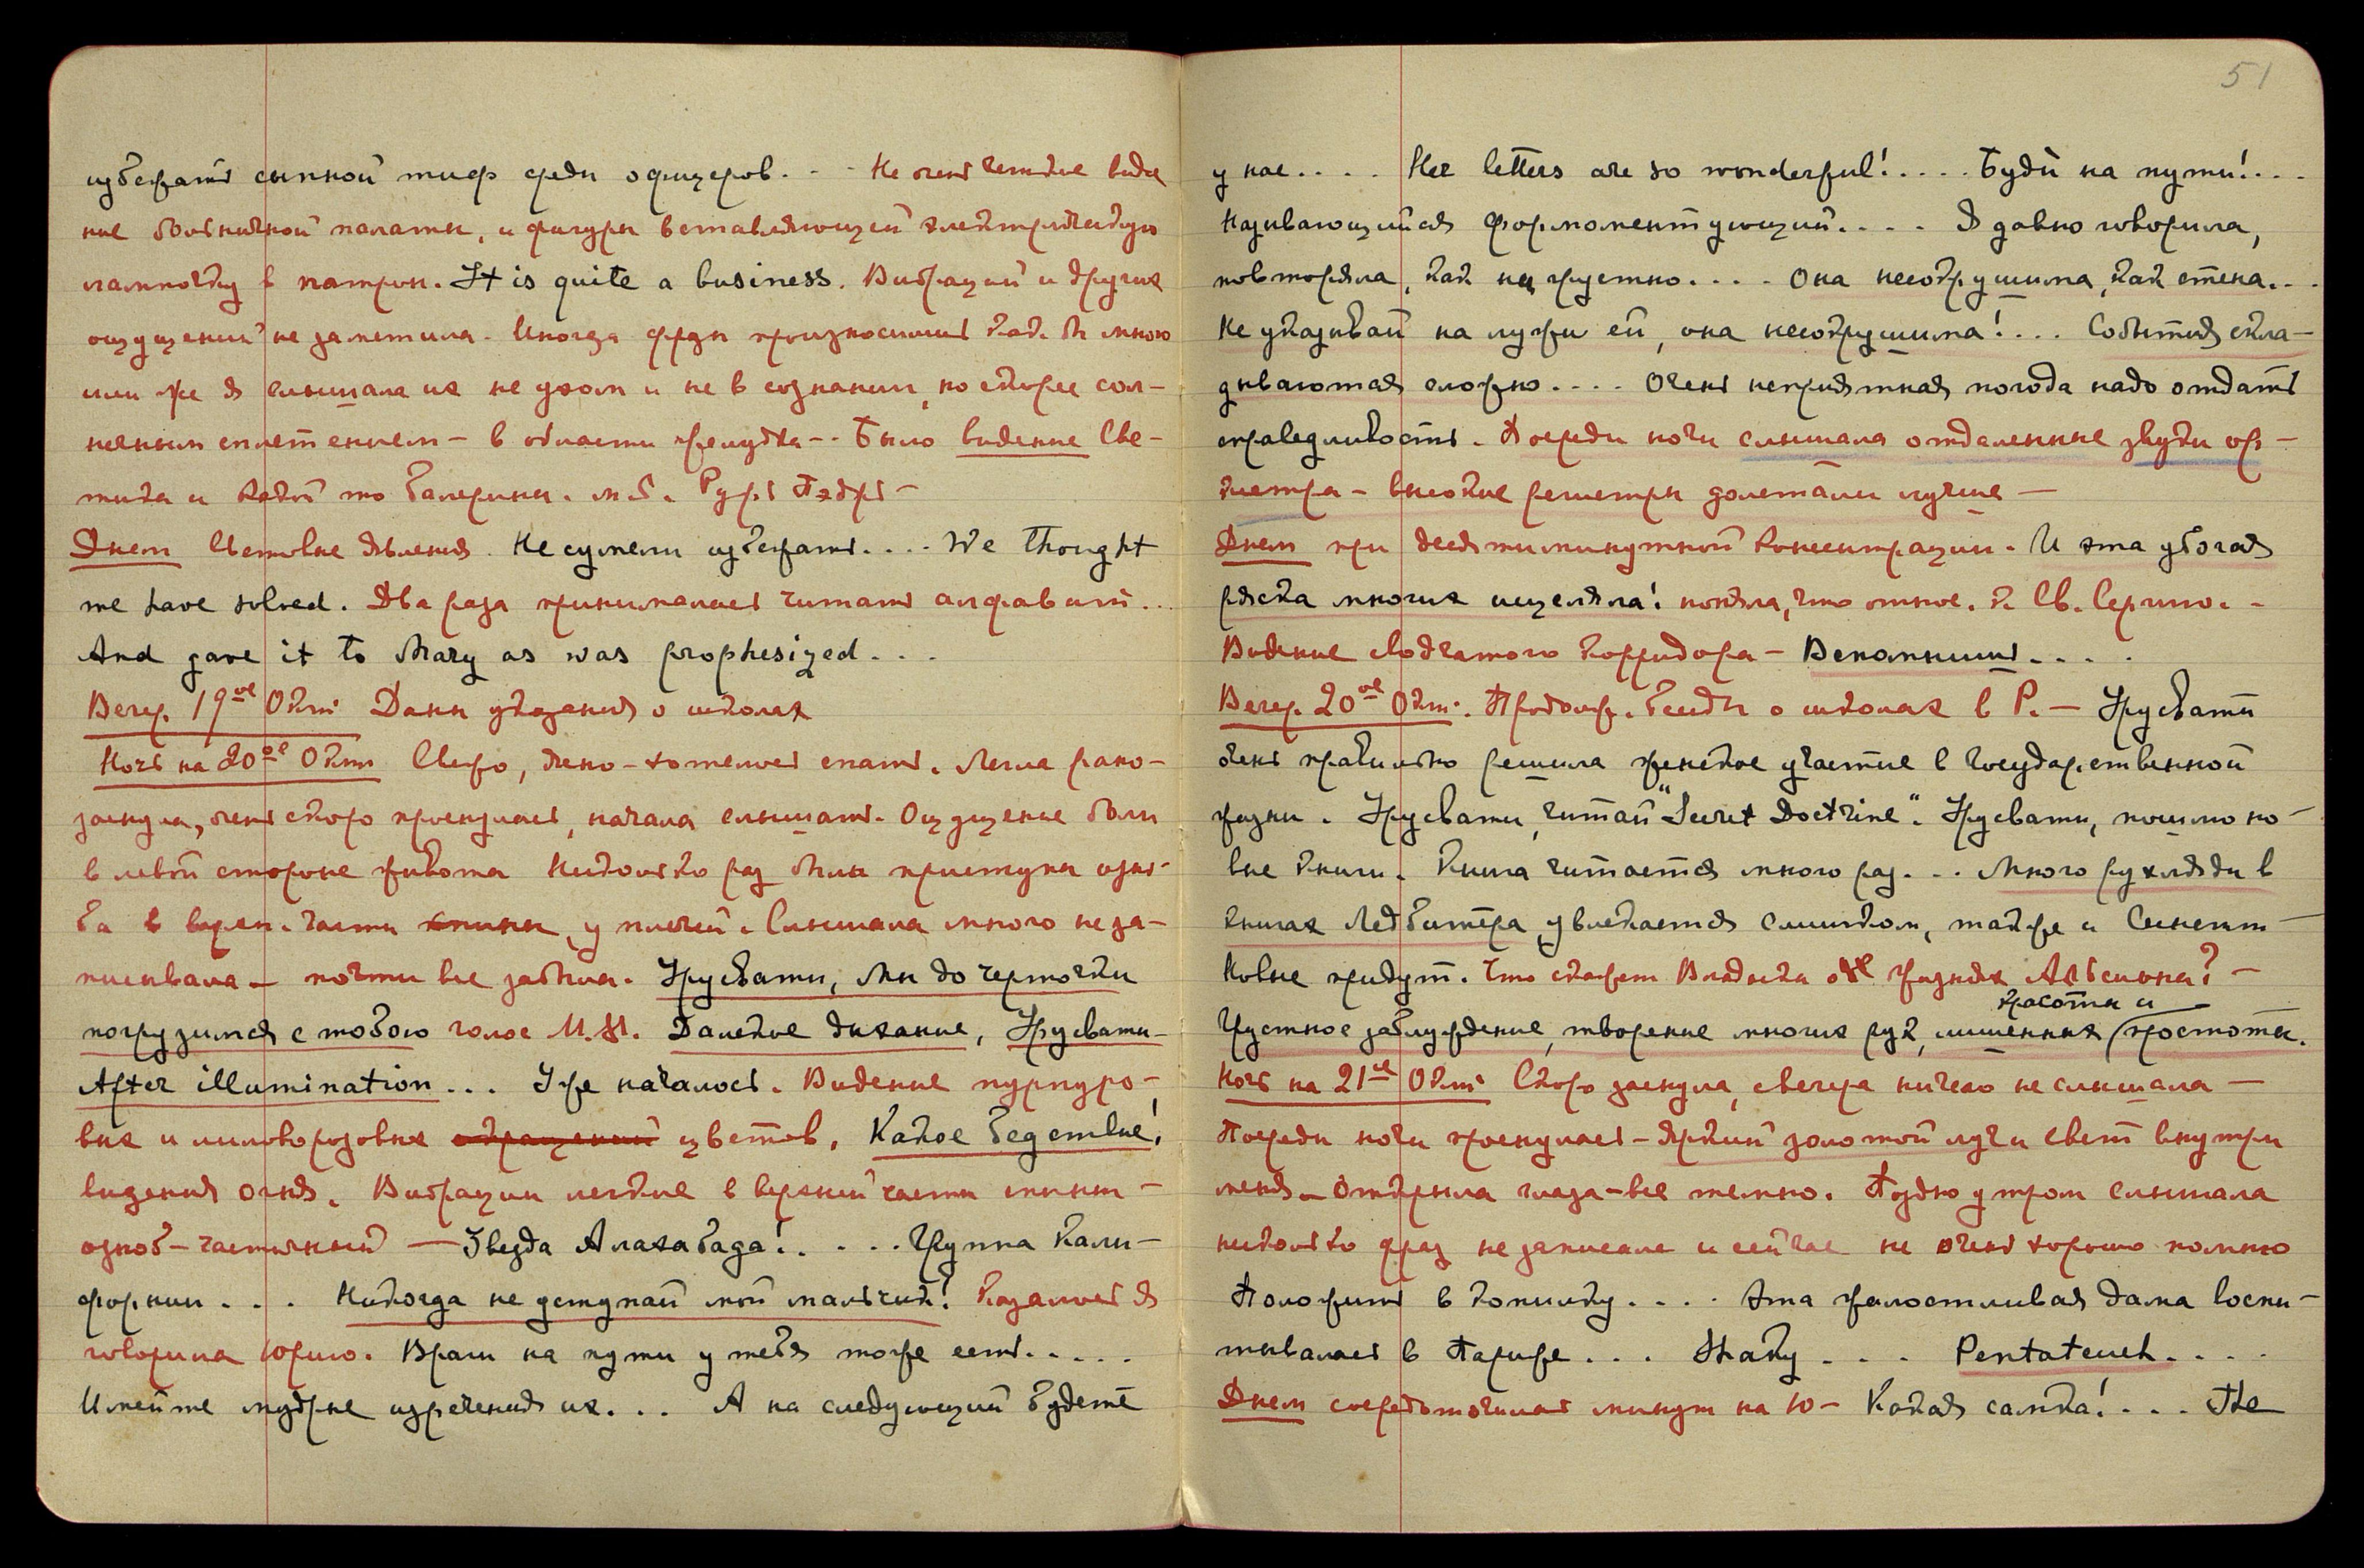 избежать сыпной тиф среди офицеров. . . Не очень четкое виде
ние больничной палаты, и фигуры вставляющей электрическую
лампочку в патрон. It is quite a business. Вибраций и других
ощущений не заметила. Иногда фразы произносились как бы мною
или же я слышала их не ухом и не в сознании, но скорее сол-
нечным сплетением – в области желудка -. Было видение Све-
тика и какой то балерины. м.б. Руфь Пэдж –
Днем Световые явления. Не сумели избежать. . . . We thought
we have solved. Два раза принималась читать алфавит. . .
And gave it to Mary as was prophesized. . .
Вечер. 19ое Окт. Даны указания о школах
Ночь на 20ое Окт. Свежо, ясно – хотелось спать. Легла рано –
заснула, очень скоро проснулась, начала слышать. Ощущение боли
в левой стороне живота Несколько раз были приступы озно-
ба в верхн. части спины, у плечей. Слышала много не за-
писывала – почти все забыла. Урусвати, Мы до черточки
погрузимся с тобою голос М.М. Далекое дыхание, Урусвати –
After illumination . . . Уже началось. Видение пурпуро-
вых и лиловорозовых обращений цветов. Какое бедствие!
видения огня. Вибрации легкие в верхней части спины –
озноб – частичный — Звезда Алахабада!. . . . . Группа Кали-
форнии . . . Никогда не уступай мой мальчик! Казалось я
говорила Юрию. Враги на пути у тебя тоже есть. . . . .
Имейте мудрые изречения их. . . А на следующий будете
51
у нас. . . . Her letters are so wonderful!. . . . Будь на пути!. . .
Называющийся Форможентующий. . . . Я давно говорила,
повторяла, как на грустно. . . . Она несокрушима, как стена. . .
Не указывай на лужи ей, она несокрушима!. . . События скла-
дываются сложно. . . . Очень неприятная погода надо отдать
справедливость. Посреди ночи слышала отдаленные звуки ор-
кестра – высокие регистры долетали лучше —
Днем при десятиминутной концентрации. И эта убогая
ряска многих исцеляла! поняла, что относ. к Св. Сергию. -
Видение сводчатого корридора – Вспомнишь. . . .
Вечер. 20ое Окт. Продолж. беседы о школах в Р. — Урусвати
очень правильно решила женское участие в государственной
жизни. Урусвати, читай "Secret Doctrine". Урусвати, пошлю но-
вые книги. Книга читается много раз. . . Много рухляди в
книгах Ледбитера, увлекается слишком, также и Синетт —
Новые придут. Что скажет Владыка об жизнях Альсиона? –
Грустное заблуждение, творение многих рук, лишенных красоты и простоты.
Ночь на 21ое Окт. Скоро заснула, с вечера ничего не слышала —
Посреди ночи проснулась – Яркий золотой луч и свет внутри
меня – открыла глаза – все темно. Поздно утром слышала
несколько фраз не записала и сейчас не очень хорошо помню
Положить в копилку. . . . Эта жалостливая дама воспи-
тывалась в Париже . . . Shaky . . . Pentateuch. . . .
Днем сосредоточилась минут на 10 – Какая самка!. . . The